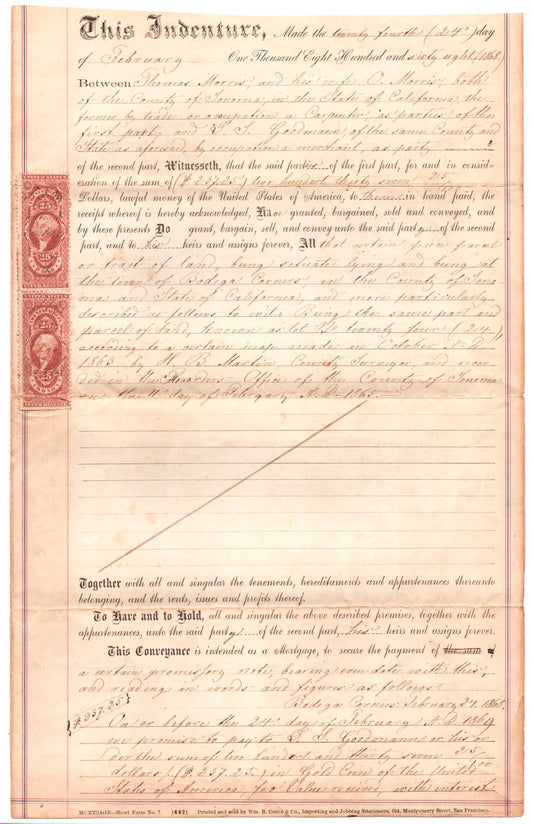 This Indenture, Made the twenty fourth (24th) day
of February One Thousand Eight Hundred and sixty eight (1868)
Between Thomas Morris, and his wife C. Morris, both
of the County of Sonoma, in the State of California, the
former by trade or occupation a Carpenter, as parties of the
first party and S. S. Goodmann of the same County and
State as aforesaid, by occupation a merchant, as party
of the second part, Witnesseth, that the said parties of the first part, for and in consid-
eration of the sum of ($ 237.25) two hundred thirty seven 25
Dollars, lawful money of the United States of America, to them in hand paid, the
receipt whereof is hereby acknowledged, Have granted, bargained, sold and conveyed, and
by these presents Do grant, bargain, sell, and convey unto the said party of the second
part, and to his heirs and assigns forever, All that certain piece parcel
or tract of land being situate lying and being at
the town of Bodega Corners, in the County of Sono
ma and State of California, and more particularly
described as follows to wit: Being the same part and
parcel of land, known as lot No twenty four (24),
according to a certain map made in October A.D.
1863 by H. B. Martin, County Surveyor, and recor
ded in the Recorders Office of the County of Sonoma
on the day of February A.D. 1865.
Together with all and singular the tenements, hereditaments and appurtenances thereunto
belonging, and the rents, issues and profits thereof.
To Have and to Hold, all and singular the above described premises, together with the
appurtenances, unto the said party of the second part, his heirs and assigns forever.
This Conveyance is intended as a Mortgage, to secure the payment of the sum of
a certain promissory note, bearing even date with this,
and reading in words and figures as follows:
Bodega Corners February 24. 1868.
($ 237.25)
On or before the 24th day of February A.D. 1869
we promise to pay to S. S. Goodmann or his or
der the sum of two hundred and thirty seven 25/100
dollars, ($ 237.25.) in Gold Coin of the United
States of America, for Value received, with interest
MORTGAGE—Short Form No. 7. [457] Printed and sold by Wm. B. Cooke & Co., Importing and Jobbing Stationers, 624, Montgomery Street, San Francisco.
25
25
25
25